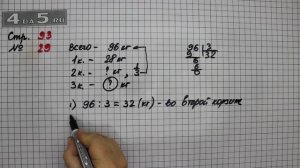 4DA5.RU
Стр. 93
№ 29
Всего - 96 кг
1 к. - 28 кг
2 к. - ? кг, 1/3
3 к. - ? кг
96 | 3
9 | 32
6
6
0
1) 96 : 3 = 32 (кг) - во второй корзине